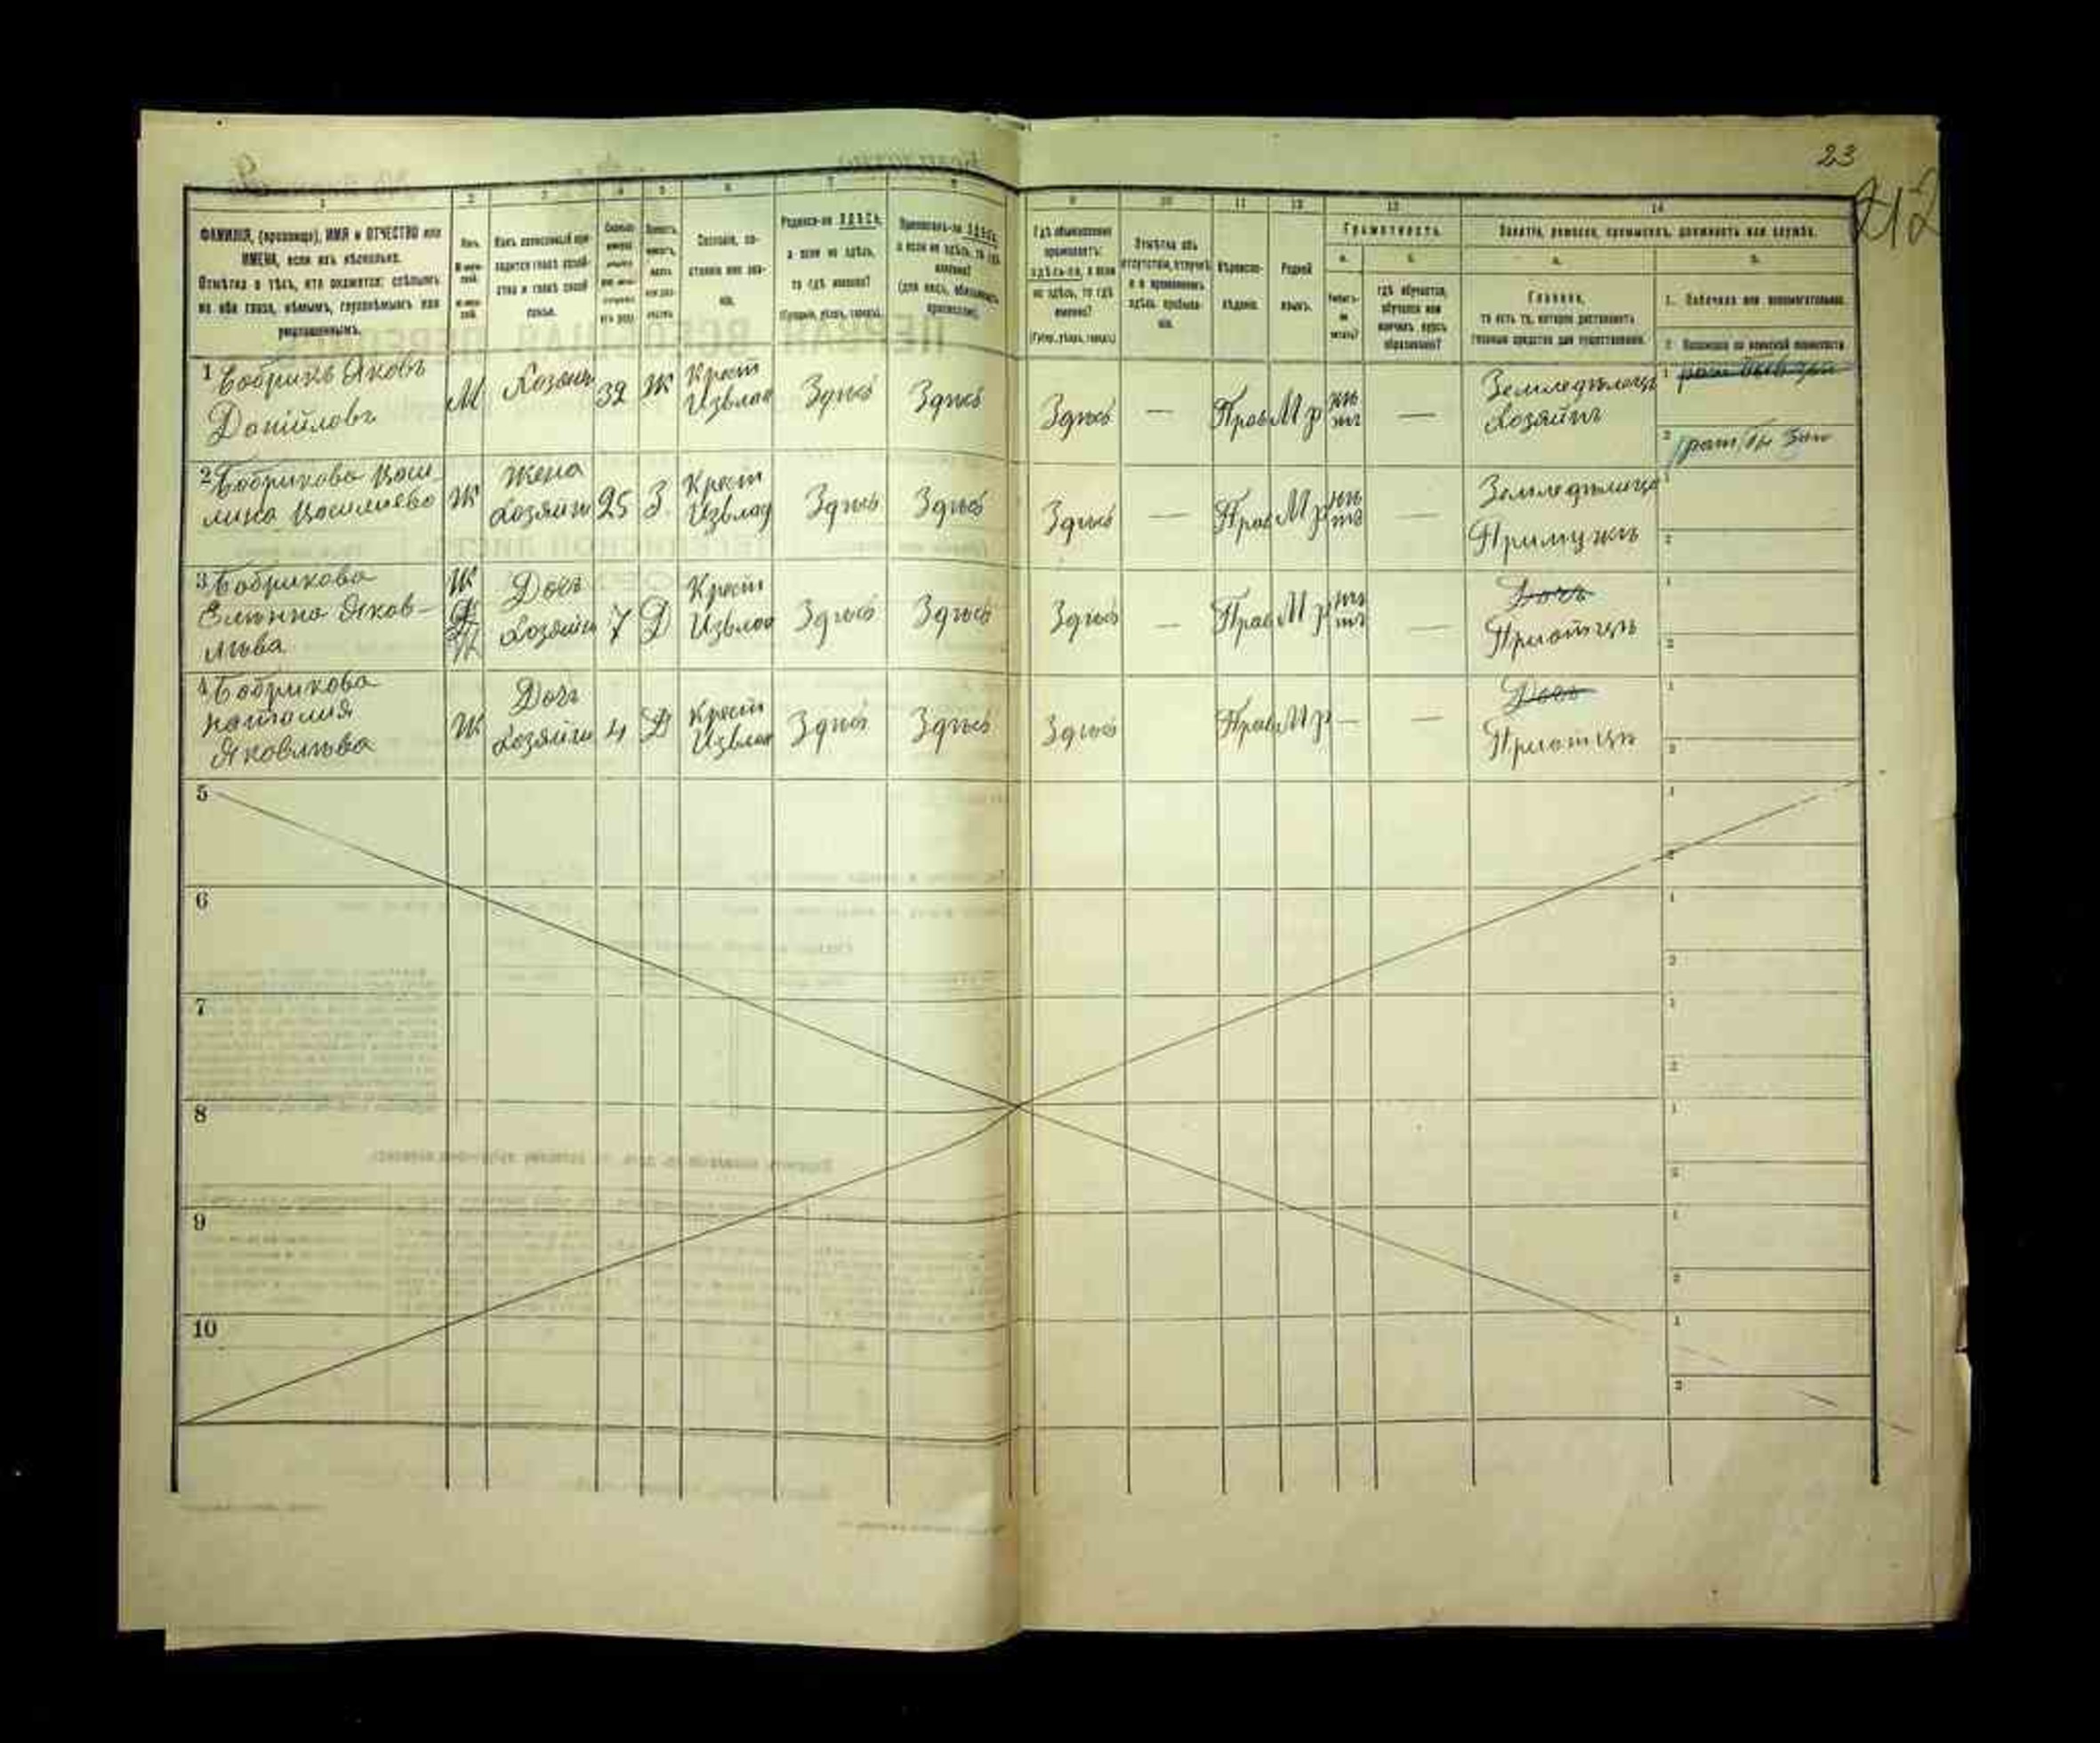 23
212
1 2 3 4 5 6 7 8 9 10 11 12 13 14
ФАМИЛІЯ, (прозвище), ИМЯ и ОТЧЕСТВО или
ИМЕНА, если ихъ нѣсколько.
Отмѣтка о тѣхъ, кто окажется: слѣпымъ
на оба глаза, нѣмымъ, глухонѣмымъ или
умалишеннымъ.
Полъ.
Какъ записанный при-
ходится главѣ хозяй-
ства и главѣ своей
семьи.
Сословіе, со-
стояніе или зва-
ніе.
Родился-ли ЗДѢСЬ,
а если не здѣсь,
то гдѣ именно?
(Губернія, уѣздъ, городъ).
Приписанъ-ли ЗДѢСЬ,
а если не здѣсь, то гдѣ
именно?
(для лицъ, обязанныхъ
припискою).
Гдѣ обыкновенно
проживаетъ:
здѣсь-ли, а если
не здѣсь, то гдѣ
именно?
(Губер., уѣздъ, городъ.)
Отмѣтка объ
отсутствіи, отлучкѣ
и о временномъ
здѣсь пребыва-
ніи.
Вѣроиспо-
вѣданіе.
Родной
языкъ.
Грамотность.
а.
б.
Умѣетъ-
ли
читать?
гдѣ обучается,
обучался или
кончилъ курсъ
образованія?
Занятіе, ремесло, промыселъ, должность или служба.
а.
б.
Главное,
то есть то, которое доставляетъ
главныя средства для существованія.
1. Побочное или вспомогательное.
2. Положеніе по воинской повинности
1 Бобрикъ Яковъ
Данійловъ
М
Хозяинъ
32
Ж
Крест
Извлад
Здѣсь
Здѣсь
Здѣсь
—
Прав
М р
нѣ
тъ
—
Земледѣлецъ
Хозяинъ
1
2
2 Бобрикова Васи
лиса Василиева
Ж
Жена
Хозяин
25
З.
Крест
Извлад
Здѣсь
Здѣсь
Здѣсь
—
Прав
М р
нѣ
тъ
—
Земледѣлица
Примужѣ
1
2
3 Бобрикова
Яков-
лѣва
Ж
Дочь
Хозяин
7
Д
Крест
Извлад
Здѣсь
Здѣсь
Здѣсь
—
Прав
М р
нѣ
тъ
—
Дочь
Приотцѣ
1
2
4 Бобрикова
Наталия
Яковлѣва
Ж
Дочь
Хозяин
4
Д
Крест
Извлад
Здѣсь
Здѣсь
Здѣсь
Прав
М р
—
—
Дочь
Приотцѣ
1
2
5
1
2
6
1
2
7
1
2
8
1
2
9
1
2
10
1
2